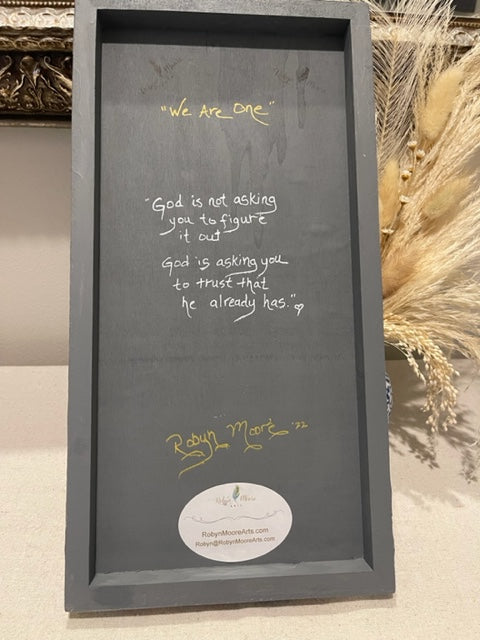 "We Are One"
"God is not asking
you to figure
it out
God is asking you
to trust that
he already has."
Robyn Moore '22
Robyn Moore
ARTS
RobynMooreArts.com
Robyn@RobynMooreArts.com